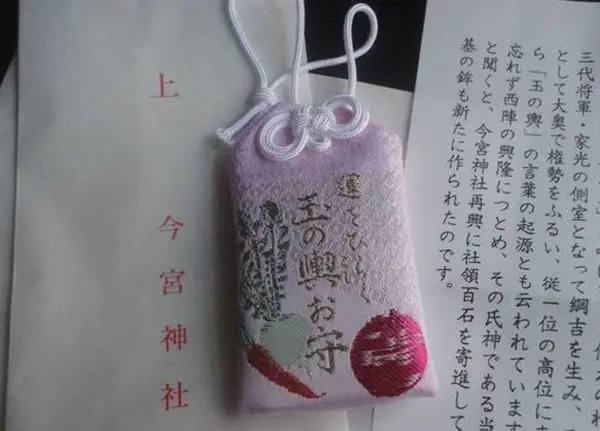 上
今宮神社
運をひらく
玉の輿お守
三代将軍・家光の側室となって綱吉を生み、
として大奥で権勢をふるい、従一位の高位に
ら「玉の輿」の言葉の起源とも云われています
忘れず西陣の興隆につとめ、その氏神である当
と聞くと、今宮神社再興に社領百石を寄進して
基の鉾も新たに作られたのです。